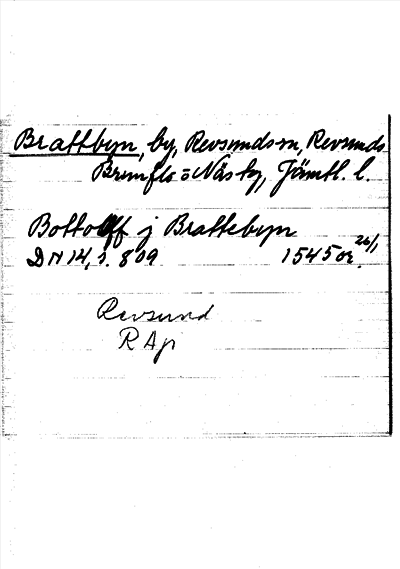 Brattbyn, by, Revsunds sn, Revsunds
Brunflo o Näs tg, Jämtl. l.
Bottolff j Brattebyn
DN 14, s. 809 1545 or. 26/1
Revsund
R Ap